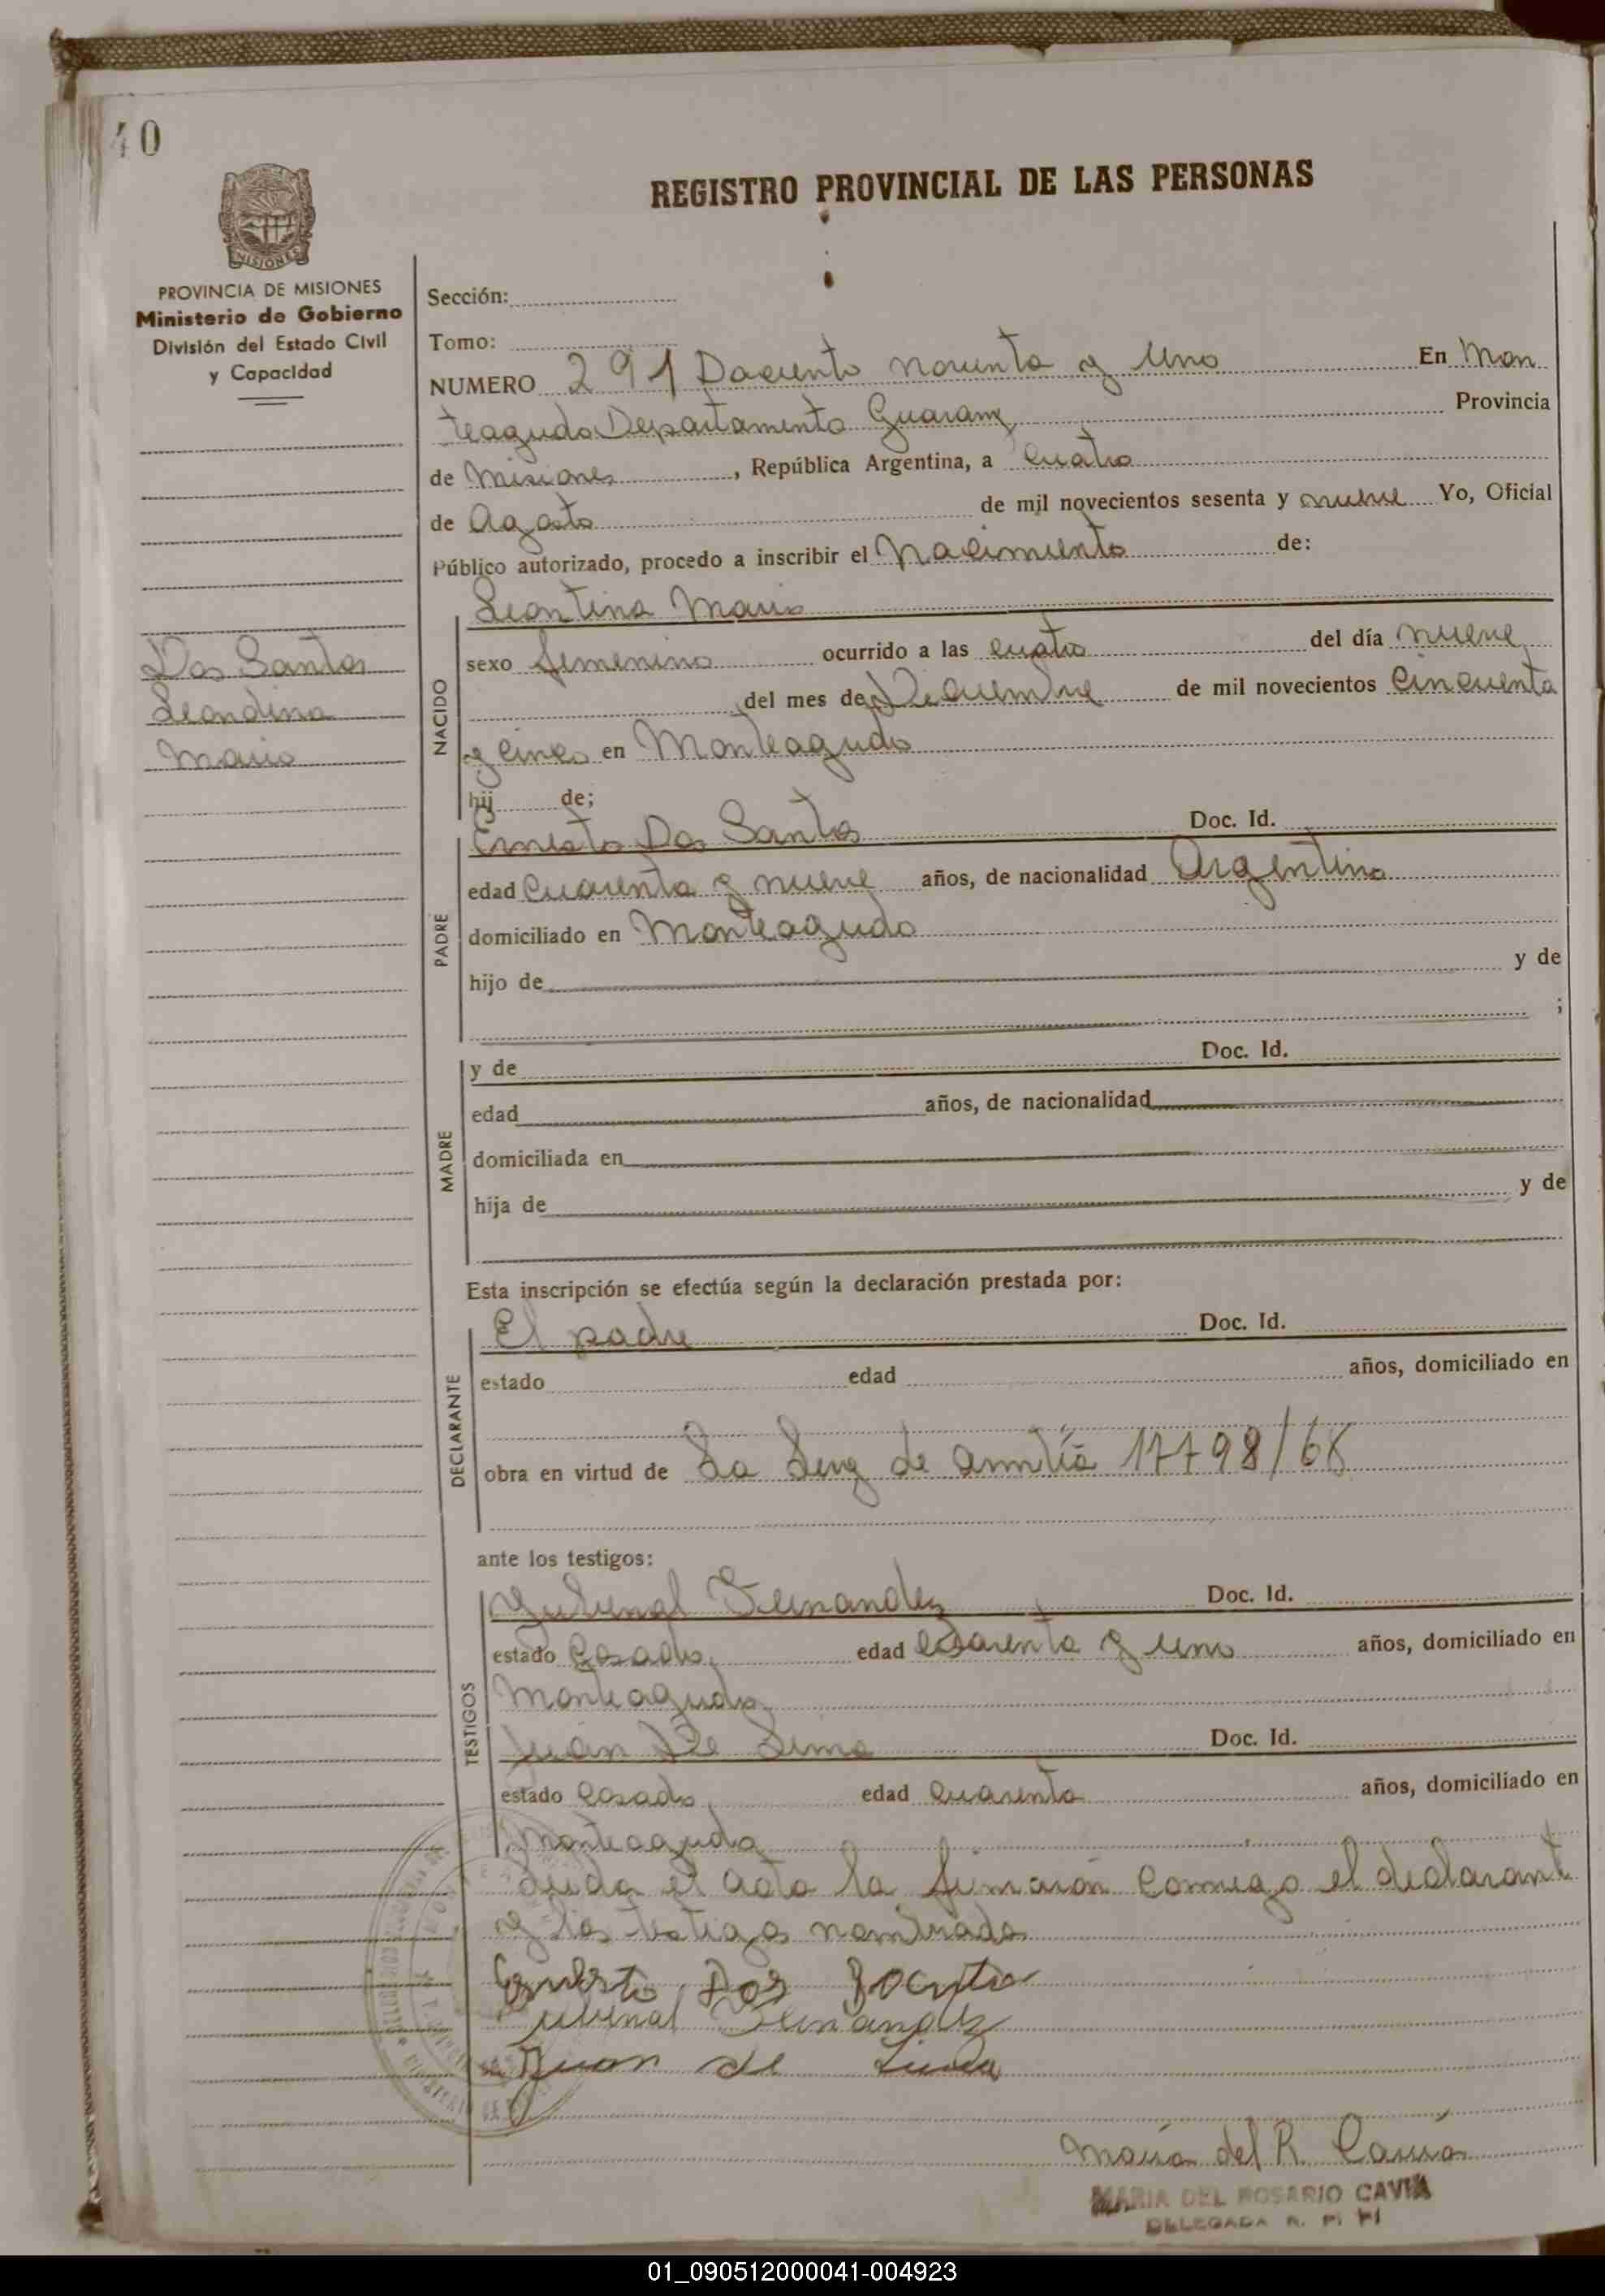 40
REGISTRO PROVINCIAL DE LAS PERSONAS
MISIONES
PROVINCIA DE MISIONES
Ministerio de Gobierno
División del Estado Civil
y Capacidad
Dos Santos
Leondina
Maria
Sección:
Tomo:
NUMERO 291 Dociento noventa y Uno En Mon
teagudo Departamento Guarany Provincia
de Misiones, República Argentina, a cuatro
de Agosto de mil novecientos sesenta y nueve Yo, Oficial
Público autorizado, procedo a inscribir el Nacimiento de:
NACIDO
Leontina Maria
sexo femenino ocurrido a las cuatro del día nueve
del mes de Diciembre de mil novecientos Cincuenta
y cinco en Monteagudo
hij de;
PADRE
Ernesto Dos Santos Doc. Id.
edad Cuarenta y nueve años, de nacionalidad Argentino
domiciliado en Monteagudo
hijo de y de
;
MADRE
y de Doc. Id.
edad años, de nacionalidad
domiciliada en
hija de y de
Esta inscripción se efectúa según la declaración prestada por:
DECLARANTE
El padre Doc. Id.
estado edad años, domiciliado en
obra en virtud de La Ley de amnitía 17798/68
ante los testigos:
TESTIGOS
Juvenal Fernandez Doc. Id.
estado Casado, edad cuarenta y uno años, domiciliado en
Monteagudo
Juan De Lima Doc. Id.
estado Casado, edad Cuarenta años, domiciliado en
Monteagudo
Leida el acta la firmarón conmigo el declarant
y los testigos nombrados
Ernesto Dos Santos
Juvenal Fernandez
Juan de Lima
Maria del R. Cavia
MARIA DEL ROSARIO CAVIA
DELEGADA R. P. P.
01_090512000041-004923